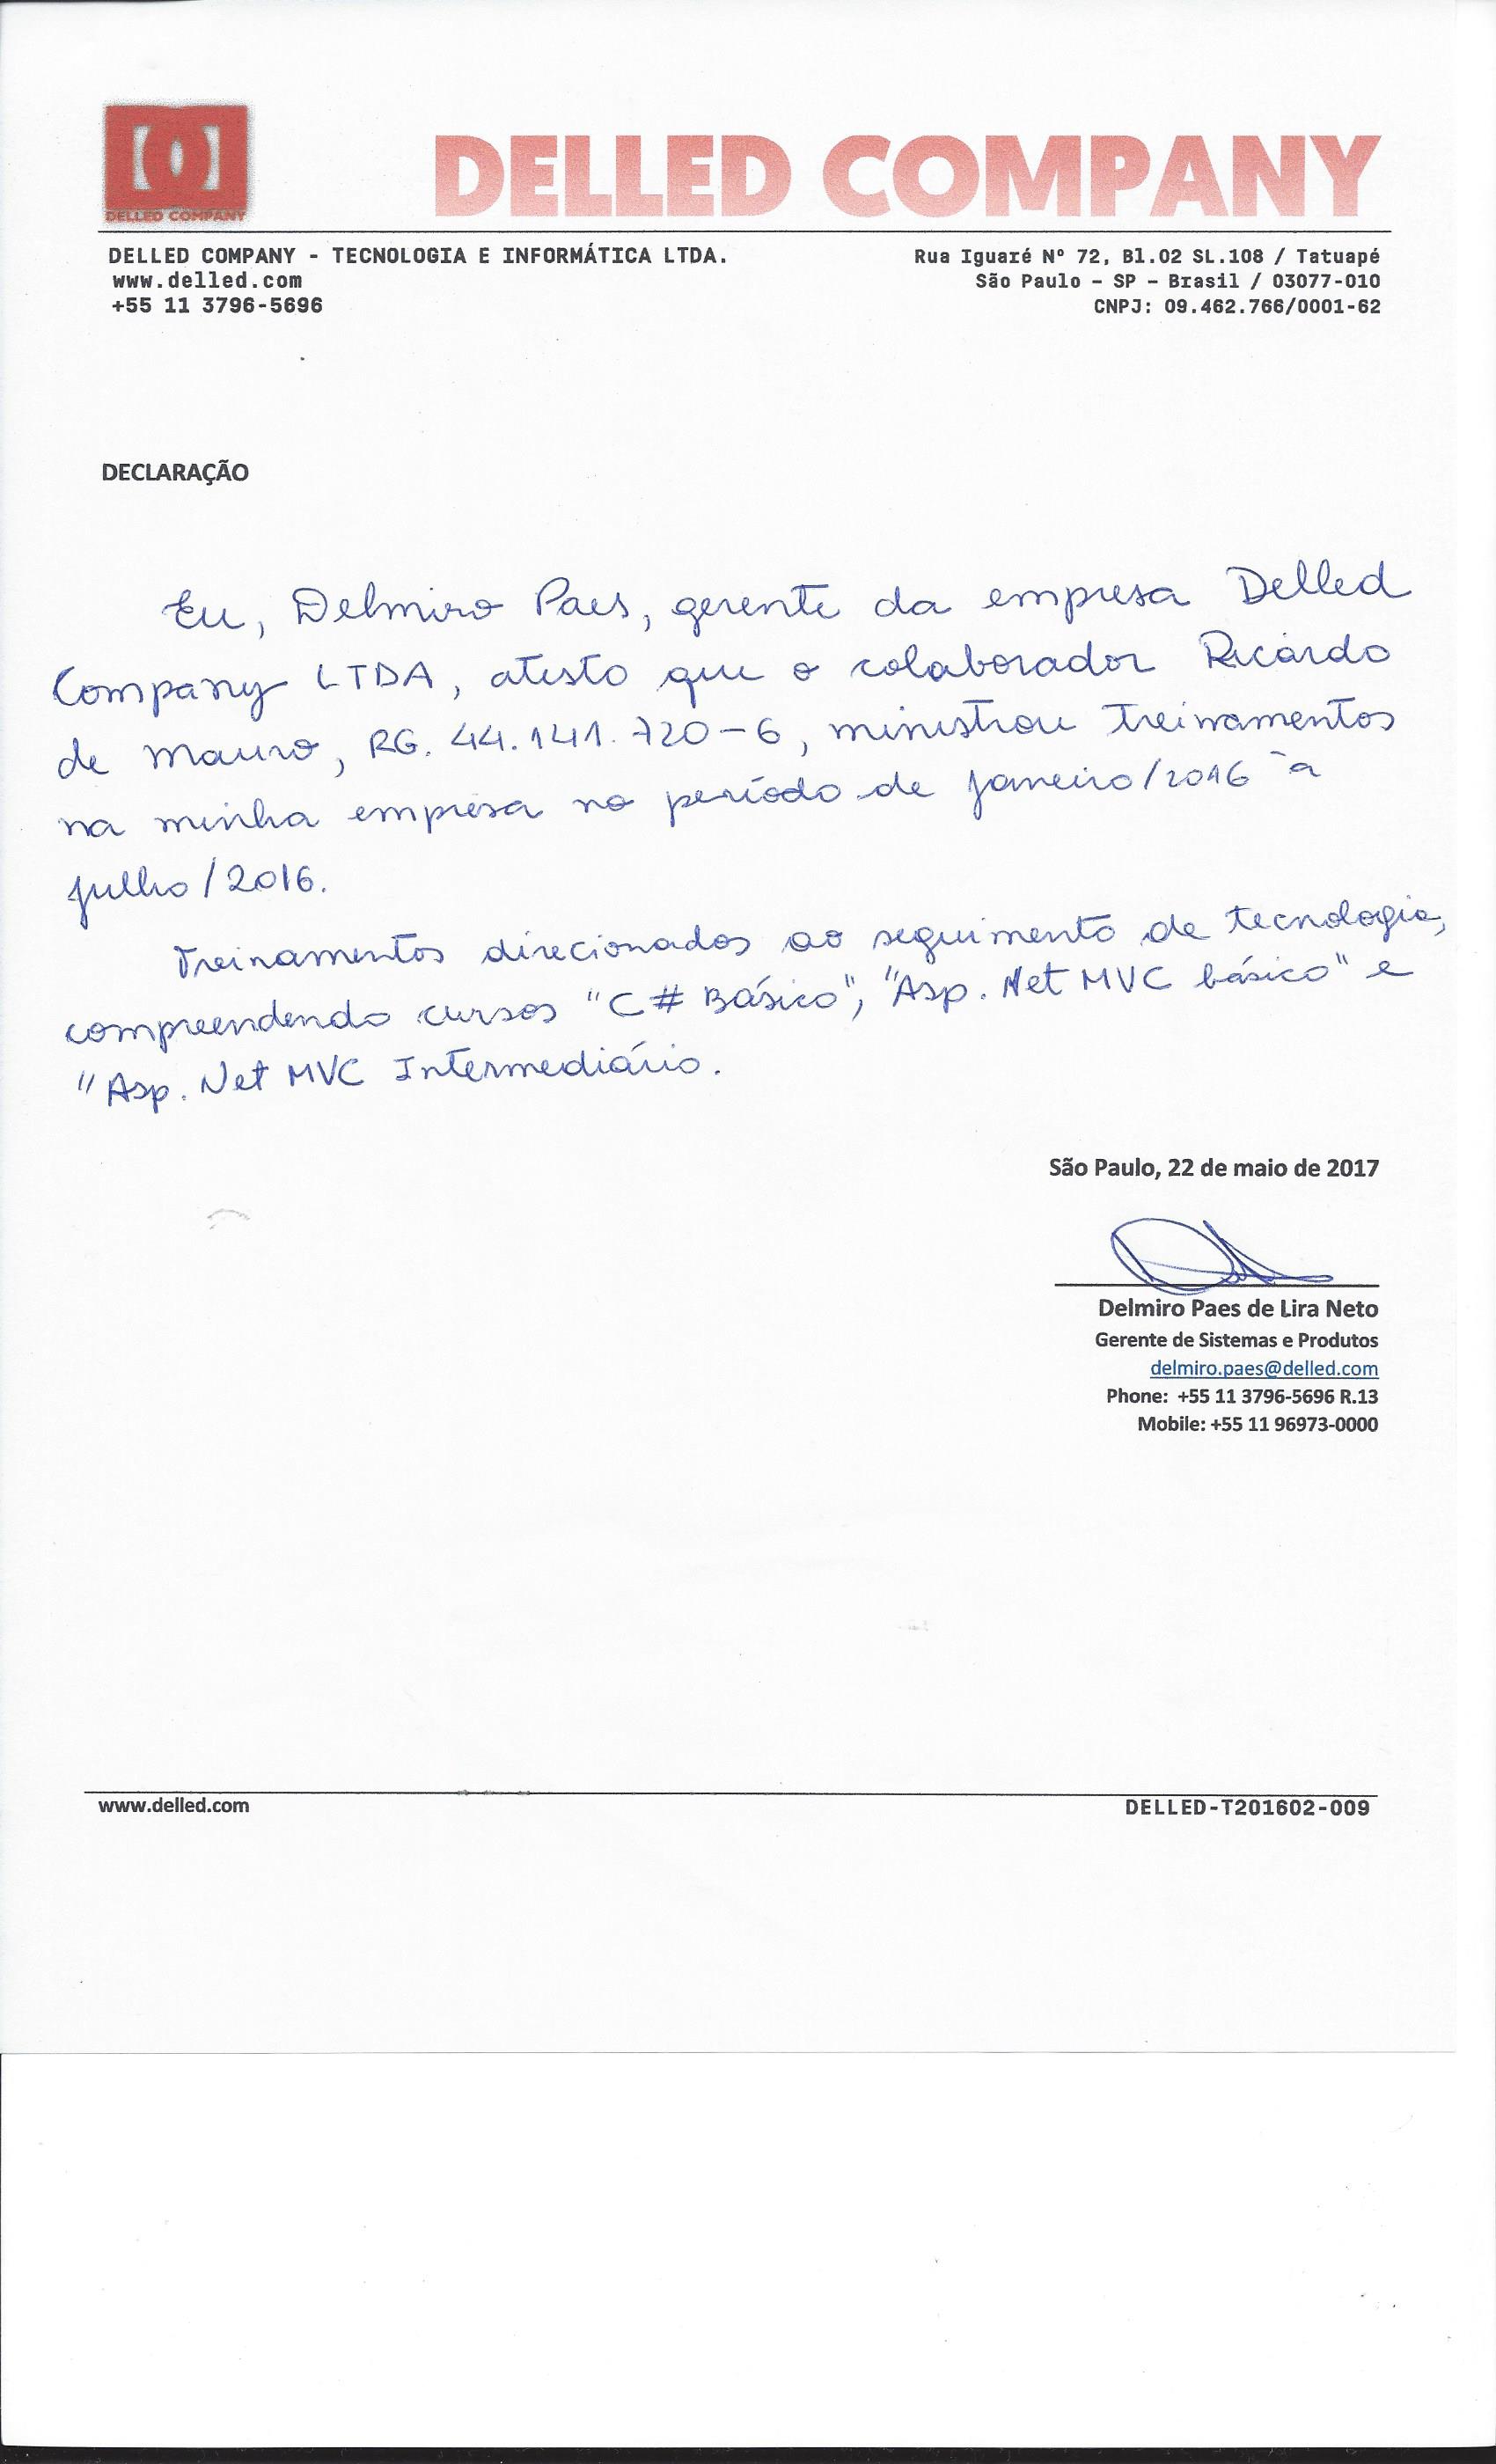 DELLED COMPANY
DELLED COMPANY
DELLED COMPANY - TECNOLOGIA E INFORMÁTICA LTDA.
www.delled.com
+55 11 3796-5696
Rua Iguaré Nº 72, Bl.02 SL.108 / Tatuapé
São Paulo – SP – Brasil / 03077-010
CNPJ: 09.462.766/0001-62
DECLARAÇÃO
Eu, Delmiro Paes, gerente da empresa Delled
Company LTDA, atesto que o colaborador Ricardo
de Mauro, RG. 44.141.720-6, ministrou treinamentos
na minha empresa no período de janeiro/2016 à
julho/2016.
Treinamentos direcionados ao seguimento de tecnologia,
compreendendo cursos "C# Básico", "Asp. Net MVC básico" e
"Asp. Net MVC Intermediário.
São Paulo, 22 de maio de 2017
Delmiro Paes de Lira Neto
Gerente de Sistemas e Produtos
delmiro.paes@delled.com
Phone: +55 11 3796-5696 R.13
Mobile: +55 11 96973-0000
www.delled.com
DELLED-T201602-009